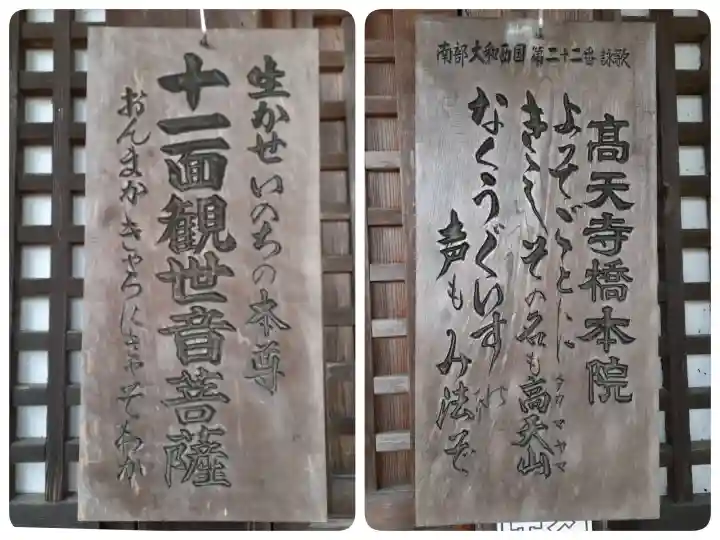 生かせいのちの本尊
十一面観世音菩薩
おんまかきゃろにきゃそわか
南部大和西国第二十二番詠歌
高天寺橋本院
よつてごとに
きこしその名も高天山
タカマヤマ
なくうぐいすの
声もみ法ぞ